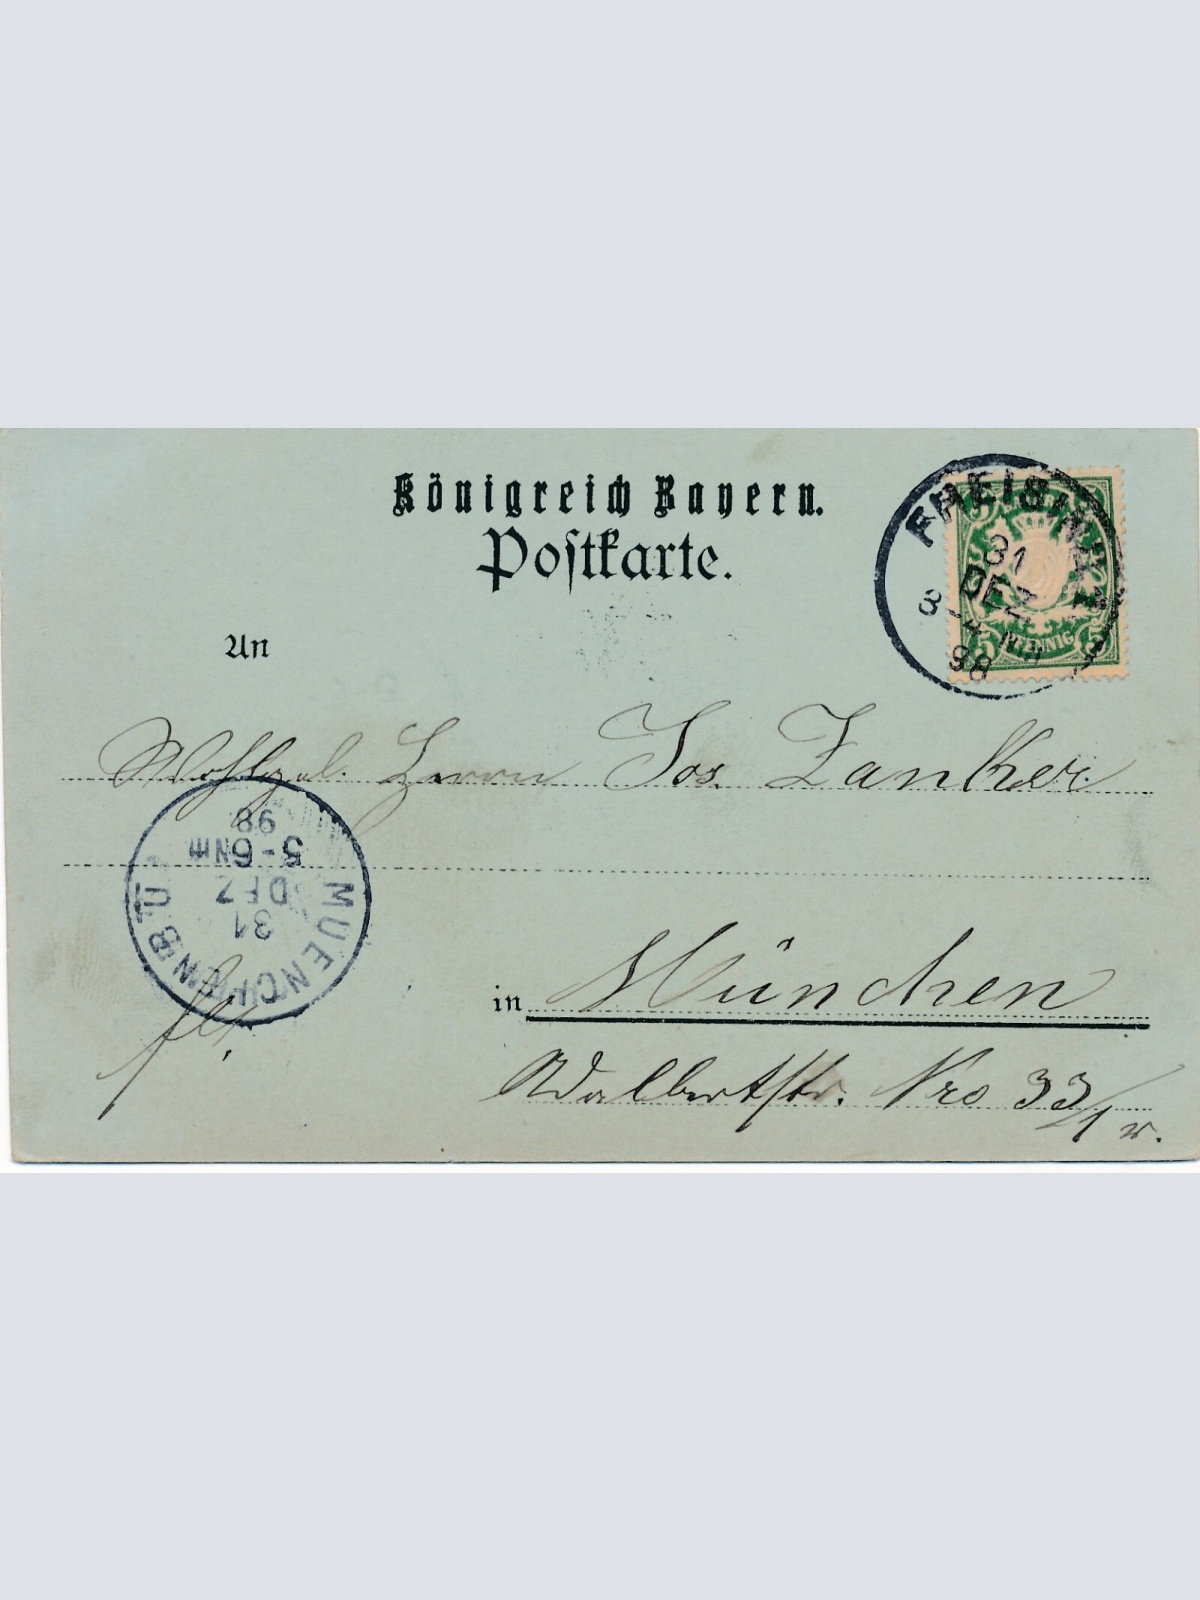 Königreich Bayern.
Postkarte.
FREISING
31
DEZ
3-4 NM
98
5 5
PFENNIG
An
Wohlgeb. Herrn Jos. Zanker
98
5-6 Nm
DEZ
31
MUENCHEN
in München
Nro 33/1 r.